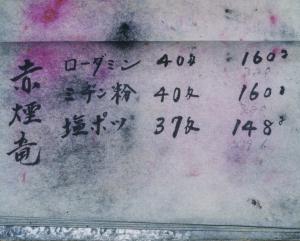 赤煙竜
ローダミン 40匁 160⁰
ミヂン粉 40匁 160⁰
塩ポツ 37匁 148⁰